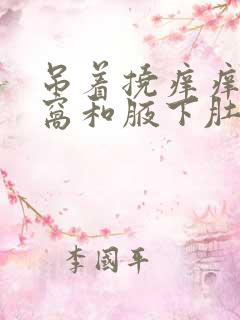 吊着挠痒痒
窝和腋下肚
李國平